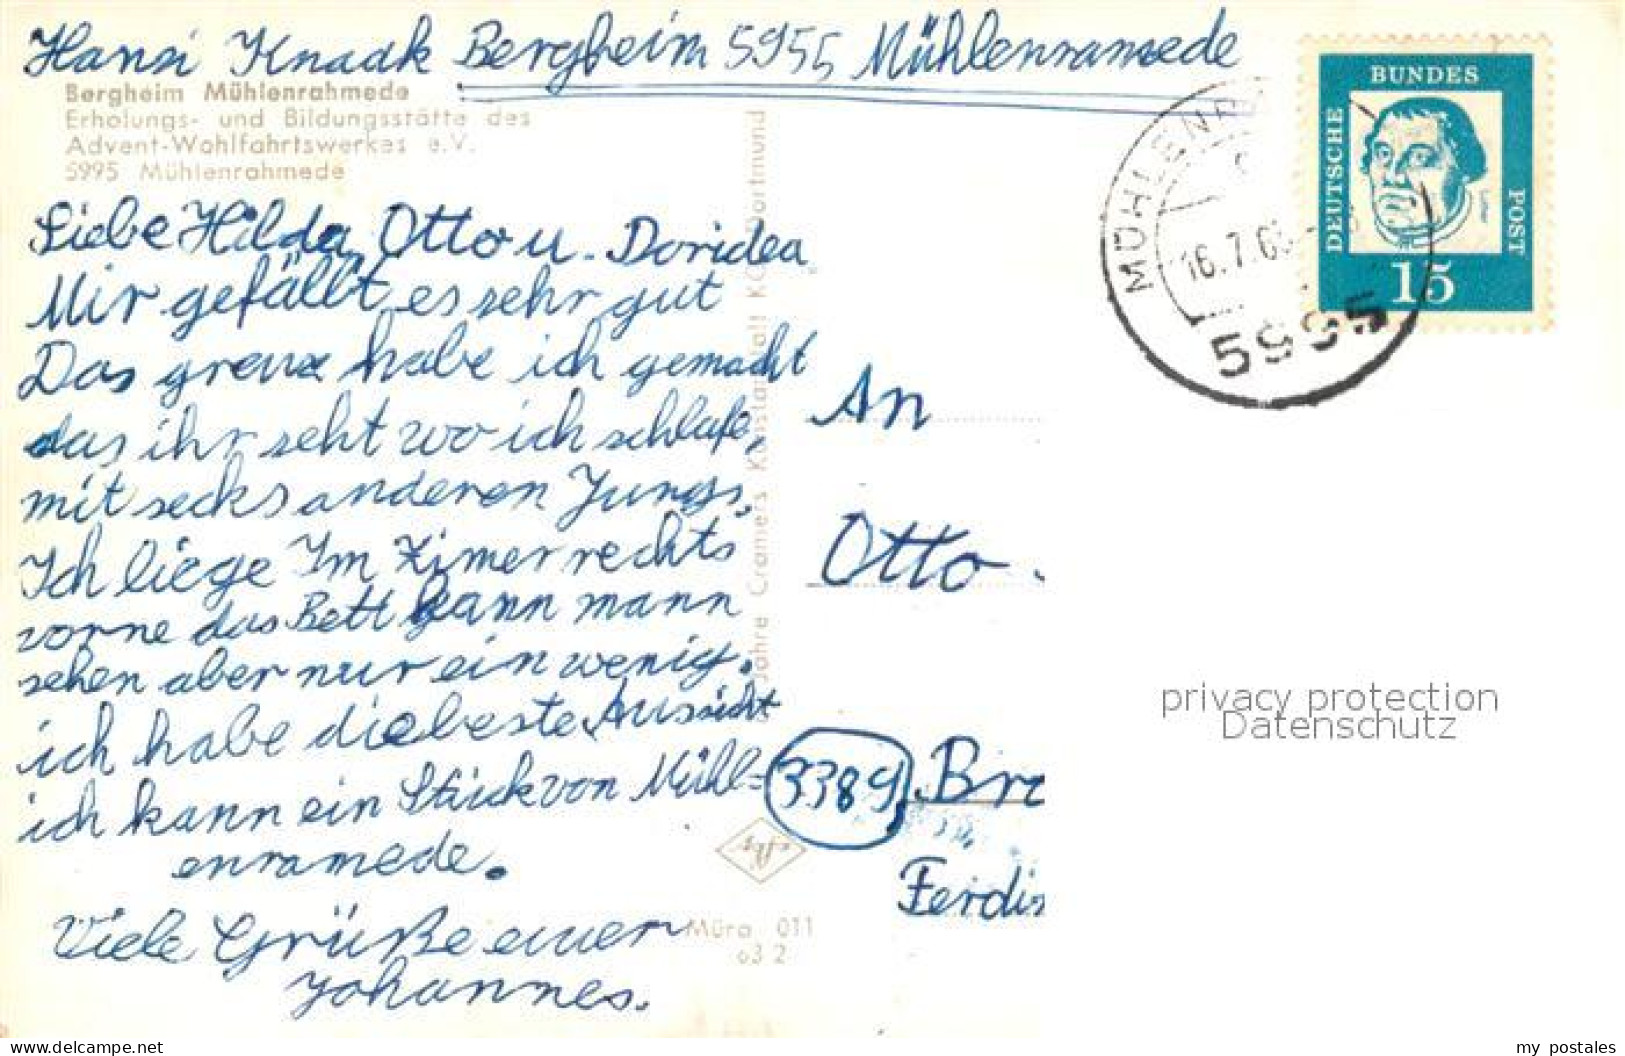 Hansi Knaak Bergheim 5955 Mühlenramede
Bergheim Mühlenrahmede
Erholungs- und Bildungsstätte des
Advent-Wohlfahrtswerkes e.V.
5995 Mühlenrahmede
Liebe Hilda, Otto u. Doridea
Mir gefällt es sehr gut
Das greuz habe ich gemacht
das ihr seht wo ich schlafe,
mit sechs anderen Jungs.
Ich liege Im Zimer rechts
vorne das Bett kann mann
sehen aber nur ein wenig.
ich habe die beste Aussicht
ich kann ein Stück von Mühl=
enramede.
Viele Grüße euer
Johannes.
Jahre Cramers Kunstanstalt KG Dortmund
Müra 011
63 2
MÜHLENR
16.7.6
5995
DEUTSCHE
BUNDES
POST
15
An
Otto
3389 Bra
Ferdin
privacy protection
Datenschutz
www.delcampe.net
my_postales